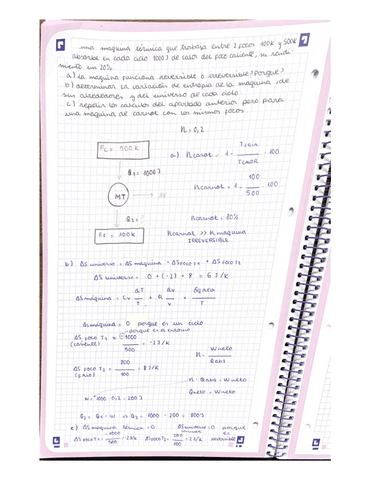 una maquina térmica que trabaja entre 2 focos 100K y 500K
absorbe en cada ciclo 1000J de calor del foco caliente, su rendi-
miento un 20%.
a) la maquina funciona reversible o irreversible? Porque?
b) determinar la variación de entropia de la maquina, de
sus alrededores y del universo de cada ciclo
c) repetir los calculos del apartado anterior pero para
una maquina de carnot con los mismos focos
η = 0,2
Fc = 500K
Q1 = 1000J
MT
Q2 =
FF = 100K
a) ηcarnot = 1 - TFRIA / TCALOR · 100
ηcarnot = 1 - 100 / 500 · 100
ηcarnot = 80%
ηcarnot >> η maquina
IRREVERSIBLE
b) ΔS universo = ΔS maquina + ΔS foco T1 + ΔS foco T2
ΔS universo = 0 + (-2) + 8 = 6 J/K
ΔS maquina = Cv dT / T + R dv / v +
ΔS maquina = 0 porque es un ciclo
ΔS foco T1 = -1000 / 500 = -2 J/K
(caliente)
η = Wneto / Qabs
ΔS foco T2 = 800 / 100 = 8 J/K
(frio)
η · Qabs = Wneto
W = 1000 · 0,2 = 200J
Q2 = Q1 - W => Q2 = 1000 - 200 = 800J
c) ΔS maquina térmica = 0 ΔS universo = 0 porque
ΔS foco T1 = -1000 / 500 = -2 J/K ΔS foco T2 = 200 / 100 = 2 J/K reversible